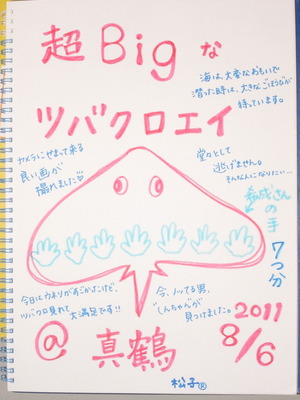 超Bigな
ツバクロエイ
海は、大変なおもいで
潜った時は、大きなごほうびが
待っています。
カメラにむかって来る
良い画が
撮れました♡
堂々として
逃げません。
そんな人になりたい…
さんの手
7つ分
今日はウネリがあったけど、
ツバクロ見れて大満足です!!
今、ノッてる男、
"しんちゃん"が
見つけました。
2011
8/6
@真鶴
松子®